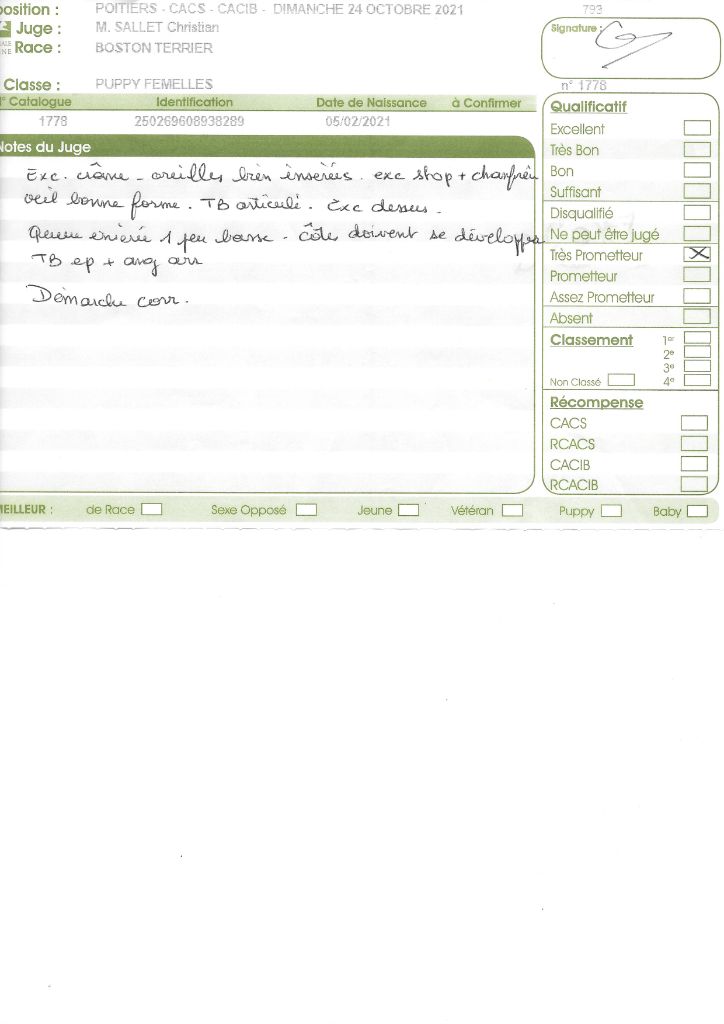 position : POITIERS - CACS - CACIB - DIMANCHE 24 OCTOBRE 2021 793
Juge : M. SALLET Christian
Race : BOSTON TERRIER
Signature :
Classe : PUPPY FEMELLES n° 1778
N° Catalogue Identification Date de Naissance à Confirmer
1778 250269608938289 05/02/2021
Notes du Juge
Exc. crâne - oreilles bien insérées. exc stop + chanfrein
oeil bonne forme. TB articulé. Exc dessus.
Queue insérée 1 peu basse - côtes doivent se développer
TB ep + ang arr
Démarche corr.
Qualificatif
Excellent
Très Bon
Bon
Suffisant
Disqualifié
Ne peut être jugé
Très Prometteur X
Prometteur
Assez Prometteur
Absent
Classement 1er
2e
3e
Non Classé 4e
Récompense
CACS
RCACS
CACIB
RCACIB
MEILLEUR : de Race Sexe Opposé Jeune Vétéran Puppy Baby